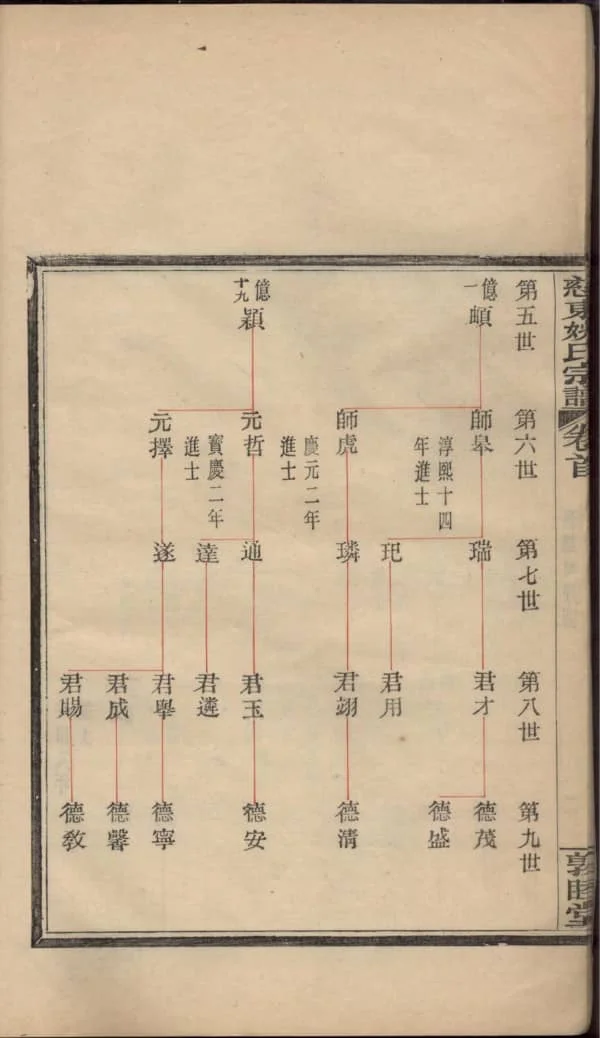 慈東姚氏宗譜
卷首
敦睦堂
第五世
億一
億十九
穎
第六世
師皋
淳熙十四
年進士
師虎
慶元二年
進士
元哲
寶慶二年
進士
元擇
第七世
瑞
玘
璘
通
達
遂
第八世
君才
君用
君翊
君玉
君遴
君舉
君成
君賜
第九世
德茂
德盛
德清
德安
德寧
德馨
德敎